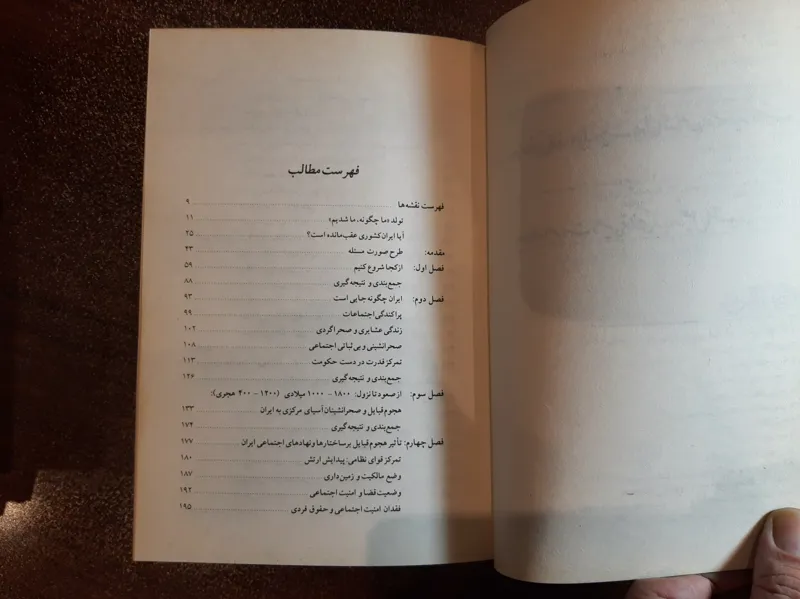 فهرست مطالب
فهرست نقشه‌ها ۹
تولد «ما چگونه، ما شدیم» ۱۱
آیا ایران کشوری عقب‌مانده است؟ ۲۵
مقدمه: طرح صورت مسئله ۴۳
فصل اول: از کجا شروع کنیم ۵۹
جمع‌بندی و نتیجه‌گیری ۸۸
فصل دوم: ایران چگونه جایی است ۹۳
پراکندگی اجتماعات ۹۹
زندگی عشایری و صحراگردی ۱۰۲
صحرانشینی و بی‌ثباتی اجتماعی ۱۰۸
تمرکز قدرت در دست حکومت ۱۱۳
جمع‌بندی و نتیجه‌گیری ۱۲۶
فصل سوم: از صعود تا نزول: ۱۸۰۰ - ۱۰۰۰ میلادی (۱۲۰۰ - ۴۰۰ هجری):
هجوم قبایل و صحرانشینان آسیای مرکزی به ایران ۱۳۳
جمع‌بندی و نتیجه‌گیری ۱۷۴
فصل چهارم: تأثیر هجوم قبایل بر ساختارها و نهادهای اجتماعی ایران ۱۷۷
تمرکز قوای نظامی: پیدایش ارتش ۱۸۰
وضع مالکیت و زمین‌داری ۱۸۷
وضعیت قضا و امنیت اجتماعی ۱۹۲
فقدان امنیت اجتماعی و حقوق فردی ۱۹۵